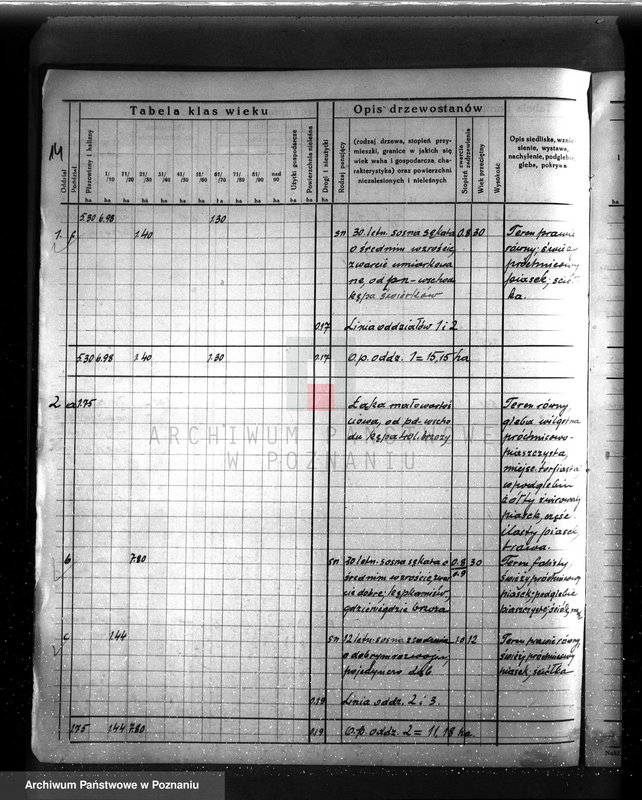 Tabela klas wieku
Opis drzewostanów
14
Oddział
Pododdział
Płazowizny i halizny
1/10
11/20
21/30
31/40
41/50
51/60
61/70
71/80
81/90
nad 90
Użytki gospodarcze
Powierzchnia nieleśna
Drogi i nieużytki
Rodzaj panujący
(rodzaj drzewa, stopień przy-
mieszki, granice w jakich się
wiek waha i gospodarcza, cha-
rakterystyka) oraz powierzchni
niezalesionych i nieleśnych
Stopień zwarcia
Stopień zadrzewienia
Wiek przeciętny
Wysokość
Opis siedliska, wznie-
sienie, wystawa,
nachylenie, podglebie,
gleba, pokrywa
ha ha ha ha ha ha ha ha ha ha ha ha ha ha
5.30 6.98 1.30
1. f 1.40 sn 30. letn. sosna sękata 0.8 30 Teren prawie
o średnim wzroście, równy; świeży
zwarcie umiarkowa próchnicowy
ne, od pn-wschodu piasek; ściół-
kępa świerków ka.
0.17 Linia oddziałów 1 i 2.
5.30 6.98 1.40 1.30 0.17 O.p. oddz. 1 = 15,15 ha
2 a 1.75 Łąka małowartoś Teren równy
ciowa, od pd-wscho gleba wilgotna
du kępa 40 l. brzozy próchnicowo-
piaszczysta,
miejsc. torfiasta
w podglebiu
żółty żwirowaty
piasek, część.
ilasty piasek,
trawa.
b 7.80 sn 30 letn. sosna sękata o 0.8 30 Teren falisty
średnim wzroście, zwar 0.9 świeży próchnicowy
cie dobre; kępkami św., piasek; podglebie
gdzieniegdzie brzoza piaszczyste, ściółka, mech
c 1.44 sn 12 letn. sosna z sadzenia 1.0 12 Teren prawie równy,
o dobrym rozwoju, świeży próchnicowy
pojedynczo dąb piasek, ściółka
0.19 Linia oddz. 2 i 3.
1.75 1.44 7.80 0.19 O.p. oddz. 2 = 11,18 ha
ARCHIWUM PAŃSTWOWE
W POZNANIU
Nakł.
Archiwum Państwowe w Poznaniu